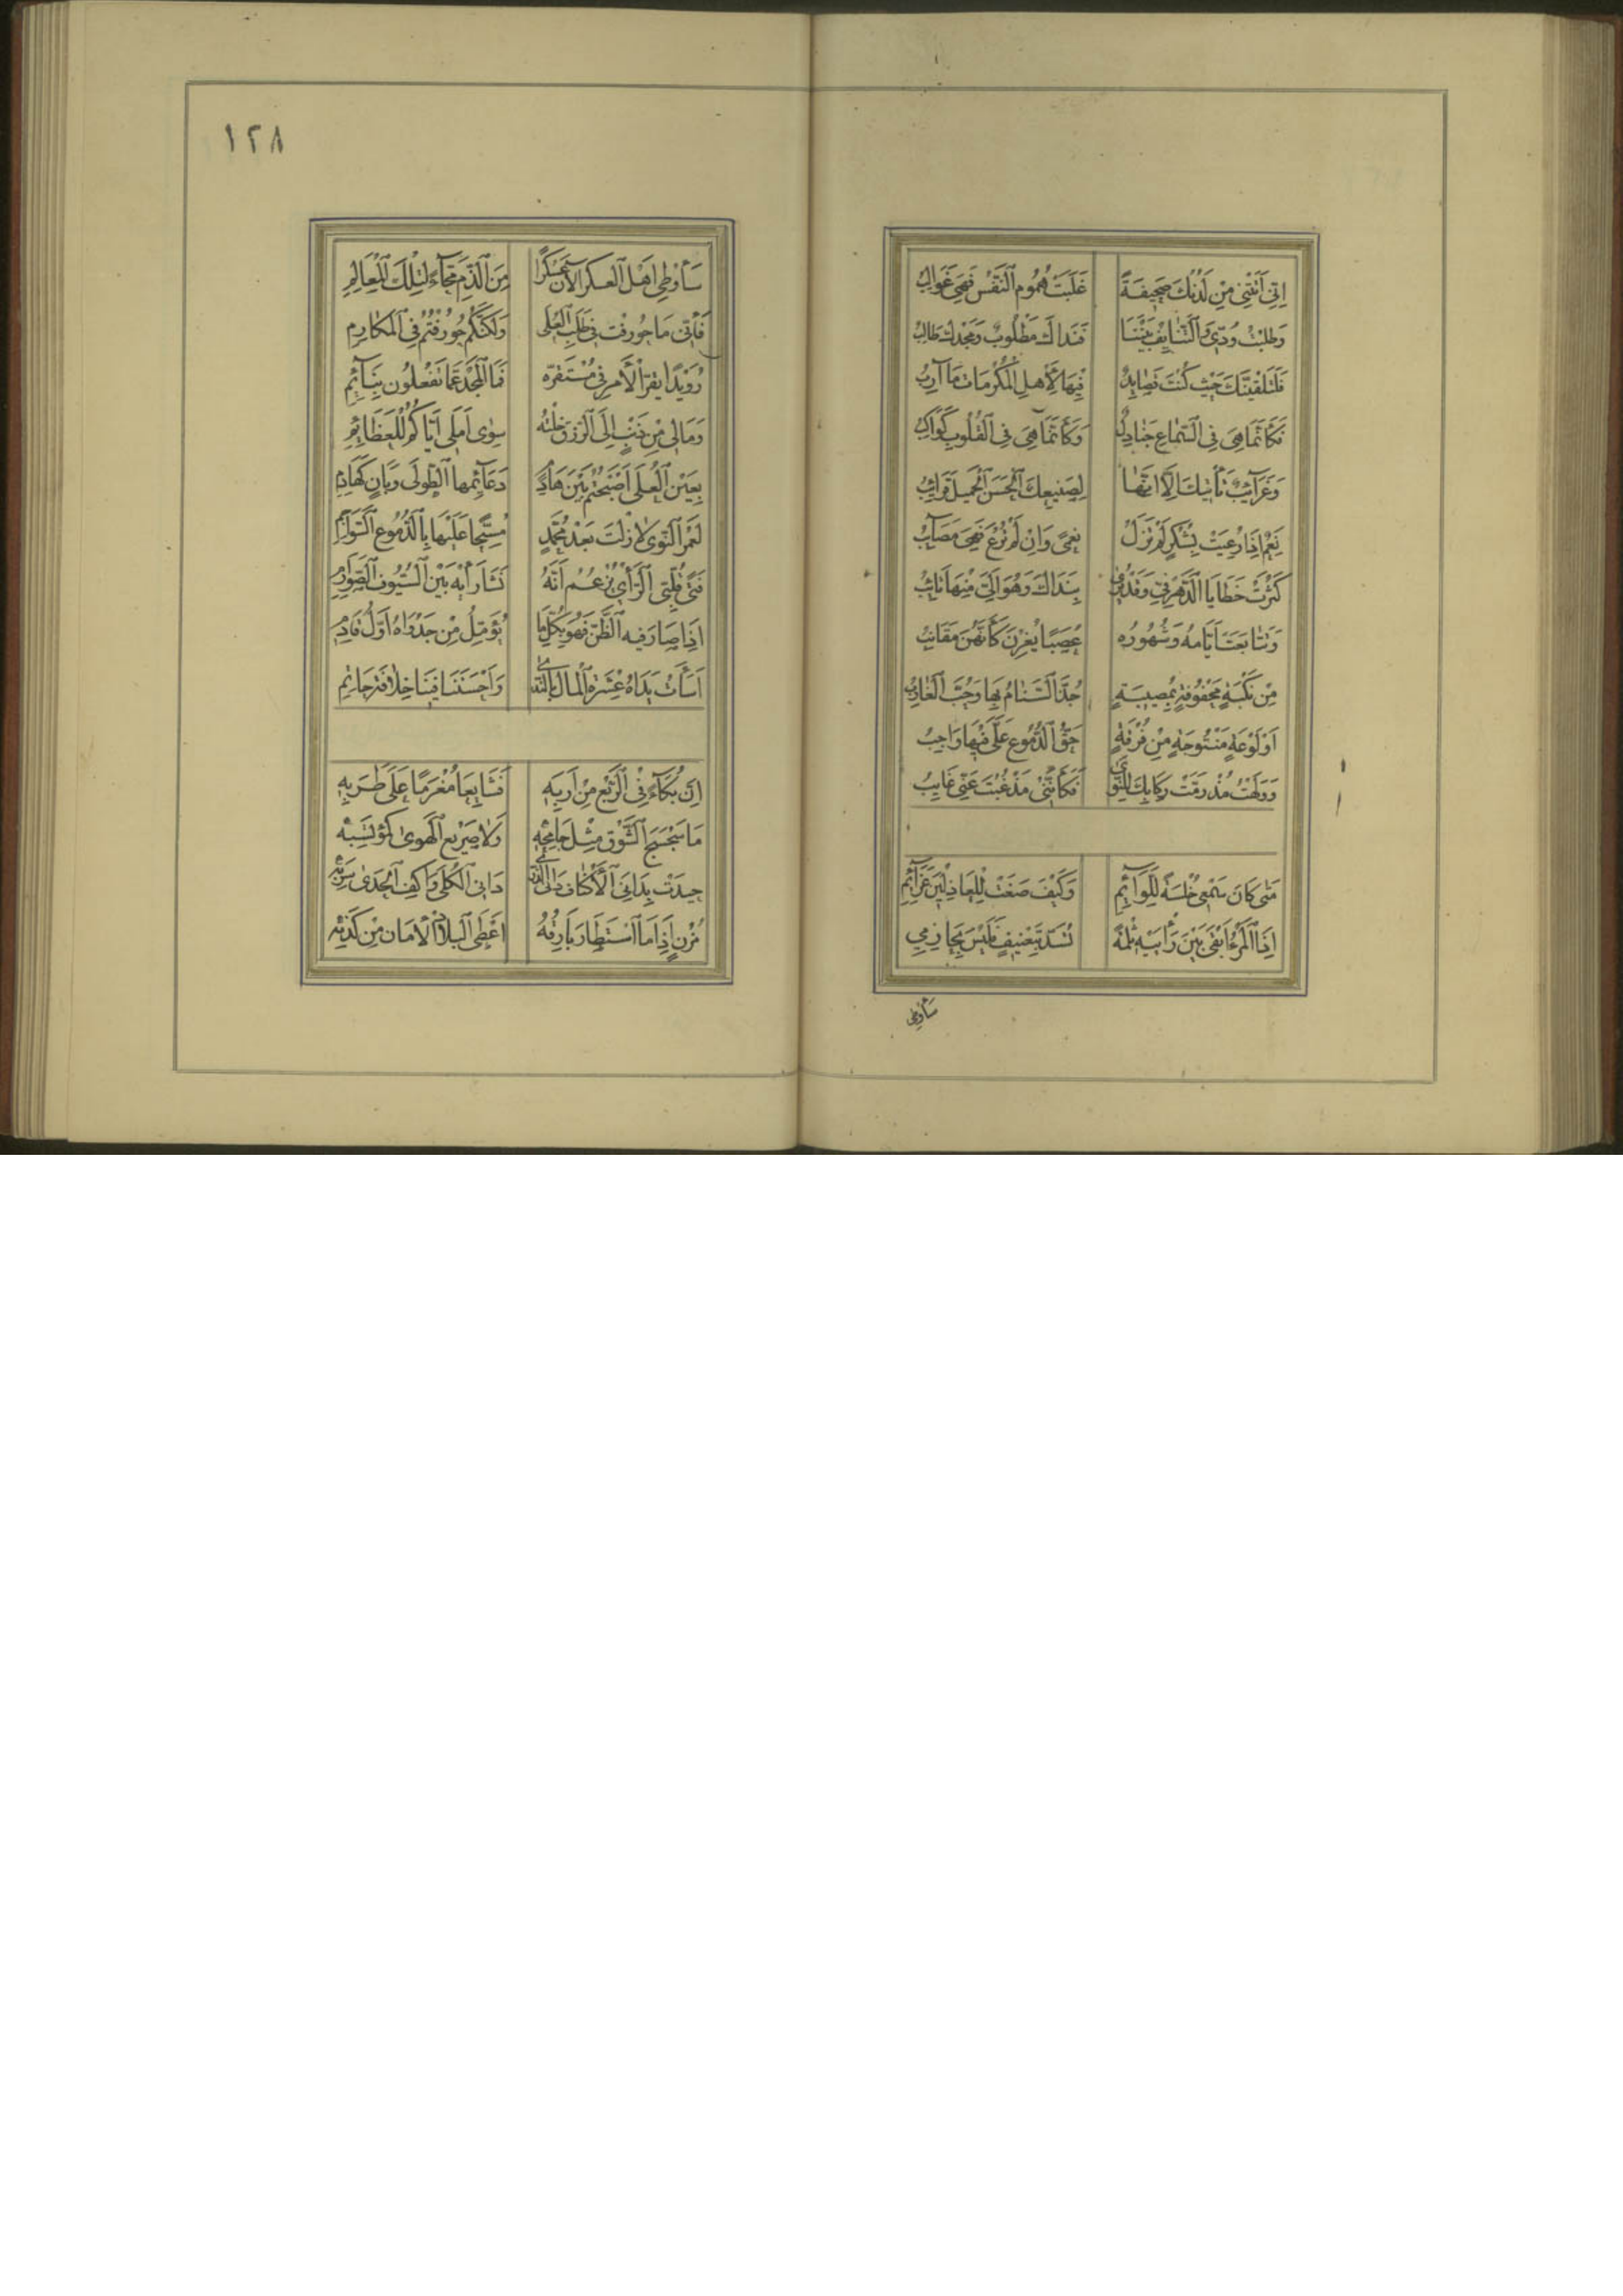 اِنِّي اَتَتْنِي مِنْ لَدُنْكَ صَحِيفَةً غَلَبَتْ هُمُومَ النَّفْسِ فَهِيَ غَوَالِبُ
وَطَلَبْتُ وُدِّي وَالتَّنَائِفُ بَيْنَنَا فَنَدَاكَ مَطْلُوبٌ وَمَجْدُكَ طَالِبُ
فَلَتَلْقَيَنَّكَ حَيْثُ كُنْتَ قَصَايِدٌ فِيهَا لِأَهْلِ الْمَكْرُمَاتِ مَآرِبُ
فَكَأَنَّمَا هِيَ فِي السَّمَاعِ جَنَادِلٌ وَكَأَنَّمَا هِيَ فِي الْقُلُوبِ كَوَاكِبُ
وَغَرَآئِبٌ تَأْتِيكَ اِلَّا اَنَّهَا لِصَنِيعِكَ الْحَسَنِ الْجَمِيلِ قَرَائِبُ
نِعَمٌ اِذَا رُعِيَتْ بِشُكْرٍ لَمْ تَزَلْ نِعَمًى وَاِنْ لَمْ تُرْعَ فَهِيَ مَصَآئِبُ
كَثُرَتْ خَطَايَا الدَّهْرِ فِيَّ وَقَدْ يُرٰى بِنَدَاكَ وَهُوَ اِلَيَّ مِنْهَا تَائِبُ
وَتَتَابَعَتْ اَيَّامُهُ وَشُهُورُهُ عُصَبًا يُغِرْنَ كَأَنَّهُنَّ مَقَانِبُ
مِنْ نَكْبَةٍ مَحْفُوفَةٍ بِمُصِيبَةٍ جُذَّ السَّنَامُ بِهَا وَجُبَّ الْغَارِبُ
اَوْ لَوْعَةٍ مَنْتُوجَةٍ مِنْ فُرْقَةٍ حَقُّ الدُّمُوعِ عَلَيَّ فِيهَا وَاجِبُ
وَوَلِهْتُ مُذْ زُمَّتْ رِكَابُكَ لِلنَّوٰى فَكَأَنَّنِي مُذْ غِبْتَ عَنِّي غَايِبُ
مَتٰى كَانَ سَمْعِي خُلْسَةً لِلَّوَآئِمِ وَكَيْفَ صَغَتْ لِلْعَاذِلِينَ عَزَآئِمِي
اِذَا الْمَرْءُ اَبْقٰى بَيْنَ رَأْيَيْهِ ثُلْمَةً تُسَدُّ بِتَعْنِيفٍ فَلَيْسَ بِحَازِمِ
سَأُوطِي
١٢٨
سَأُوطِي اَهْلَ الْعَسْكَرِ الْآنَ عَسْكَرًا مِنَ الذَّمِّ مَحَّآءً لِتِلْكَ الْمَعَالِمِ
فَاِنِّي مَا حُورِفْتُ فِي طَلَبِ الْعُلٰى وَلٰكِنَّكُمْ حُورِفْتُمُ فِي الْمَكَارِمِ
رُوَيْدًا يَقِرُّ الْأَمْرُ فِي مُسْتَقَرِّهِ فَمَا الْمَجْدُ عَمَّا تَفْعَلُونَ بِنَآئِمِ
وَمَالِي مِنْ ذَنْبٍ اِلَى الرِّزْقِ خِلْتُهُ سِوٰى اَمَلِي اِيَّاكُمُ لِلْعَظَائِمِ
بِعَيْنِ الْعُلٰى اَصْبَحْتُمُ بَيْنَ هَادِمٍ دَعَآئِمَهَا الطُّولٰى وَبَانٍ كَهَادِمِ
لَعَمْرُ النَّوٰى لَا زِلْتُ بَعْدَ مُحَمَّدٍ مُسِحًّا عَلَيْهَا بِالدُّمُوعِ السَّوَاجِمِ
فَتًى فُلَّتِيُّ الرَّأْيِ يَزْعُمُ اَنَّهُ نَشَا رَأْيُهُ بَيْنَ السُّيُوفِ الصَّوَارِمِ
اِذَا صَارَ فِيهِ الظَّنُّ فَهُوَ بِكُلِّ مَا يُؤَمَّلُ مِنْ جَدْوَاهُ اَوَّلُ قَادِمِ
اَسَأَتْ يَدَاهُ عِشْرَةَ الْمَالِ بِالنَّدٰى وَاَحْسَنَتَا فِينَا خِلَافَةَ حَاتِمِ
اِنَّ بُكَآءً فِي الرَّبْعِ مِنْ اَرَبِهِ فَشَايِعَا مُغْرَمًا عَلٰى طَرَبِهِ
مَا سَجْسَجُ الشَّوْقِ مِثْلُ جَاحِمِهِ وَلَا صَرِيحُ الْهَوٰى كَمُؤْتَشِبِهِ
جِيدَتْ بِدَانِي الْأَكْنَافِ دَانِي الذُّرٰى دَانِي الْكُلٰى وَاكِفِ الْجَدٰى سَرِبِهِ
مُزْنٍ اِذَا مَا اسْتَطَارَ بَارِقُهُ اَعْطَى الْبِلَادَ الْأَمَانَ مِنْ كَذِبِهِ